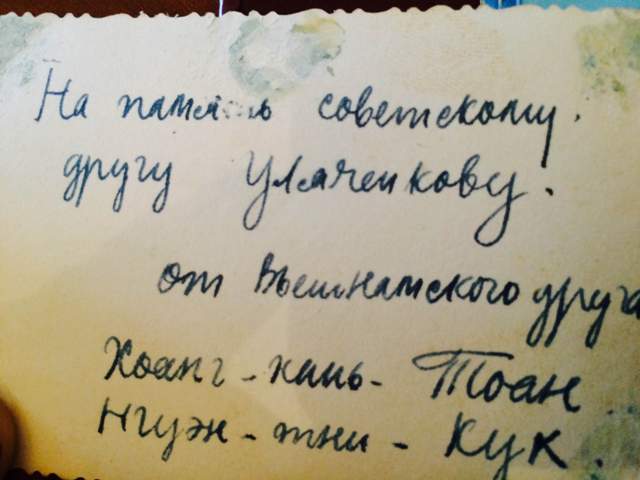 На память советскому.
другу Улаченкову.
от Вьетнамского друга
Хоанг-кань-Тоан
Нгуэн-тхи-Кук.